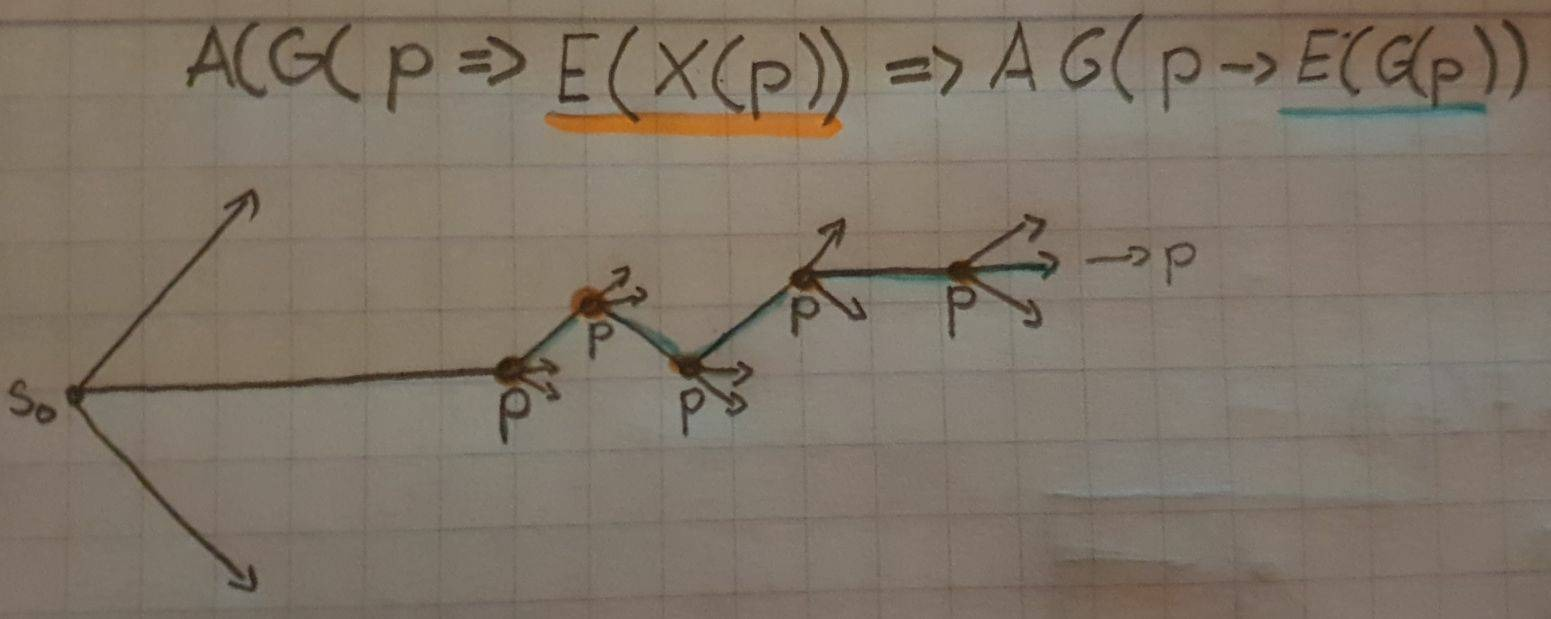 A(G(p => E(X(p)) => AG(p → E(G(p))
→ p
p
p p
S₀ p p